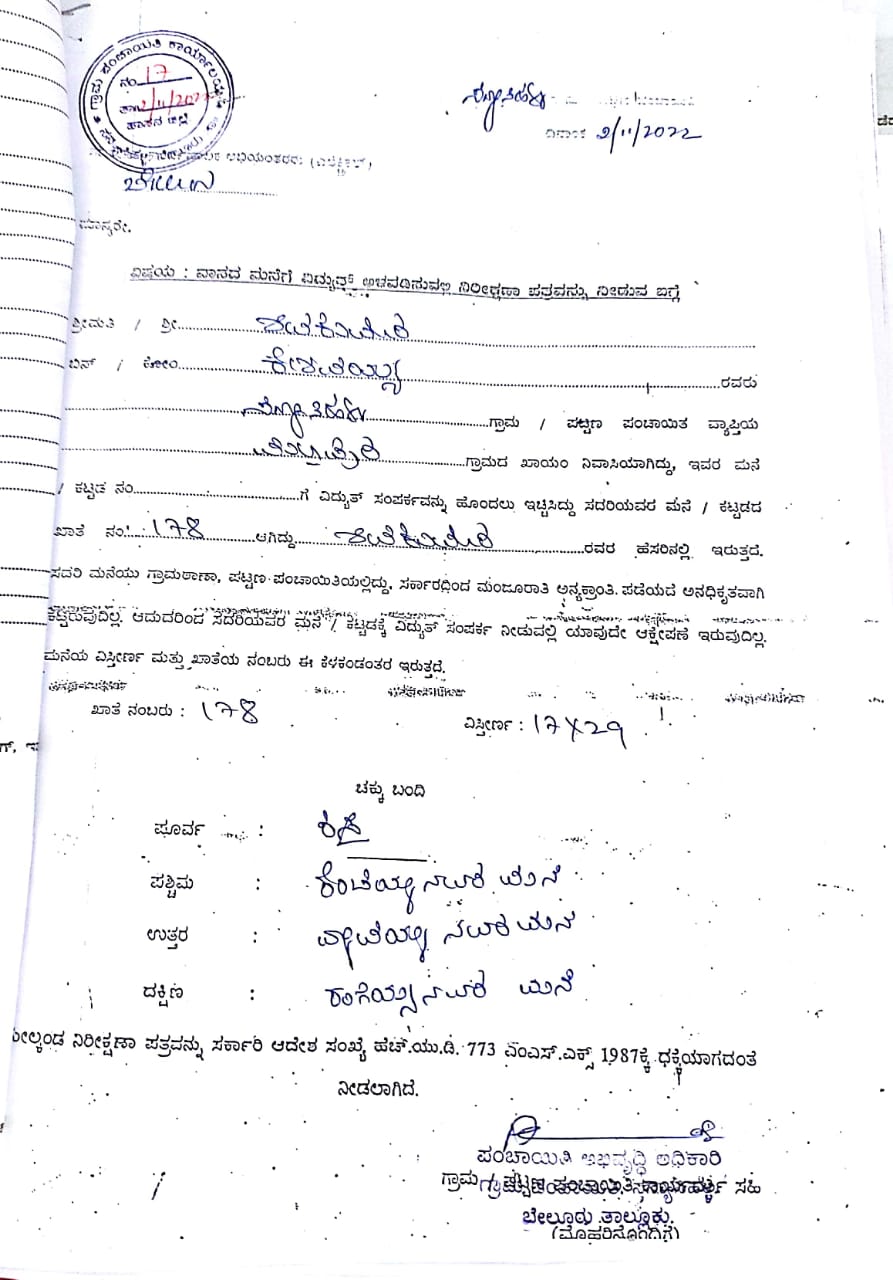 ಗ್ರಾಮ ಪಂಚಾಯಿತಿ ಕಾರ್ಯಾಲಯ
ನಂ 17
ತಾ 2/11/2022
ಹಾಸನ ಜಿಲ್ಲೆ
ದಿನಾಂಕ 2/11/2022
ಅಭಿಯಂತರರು (ವಿದ್ಯುತ್)
ಮಾನ್ಯರೇ,
ವಿಷಯ : ವಾಸದ ಮನೆಗೆ ವಿದ್ಯುತ್ ಅಳವಡಿಸುವಲ್ಲಿ ನಿರೀಕ್ಷಣಾ ಪತ್ರವನ್ನು ನೀಡುವ ಬಗ್ಗೆ
ಶ್ರೀಮತಿ / ಶ್ರೀ
ಬಿನ್ / ಕೋಂ ಕೇಶವಯ್ಯ ರವರು
ಗ್ರಾಮ / ಪಟ್ಟಣ ಪಂಚಾಯಿತ ವ್ಯಾಪ್ತಿಯ
ಗ್ರಾಮದ ಖಾಯಂ ನಿವಾಸಿಯಾಗಿದ್ದು, ಇವರ ಮನೆ
/ ಕಟ್ಟಡ ನಂ. ಗೆ ವಿದ್ಯುತ್ ಸಂಪರ್ಕವನ್ನು ಹೊಂದಲು ಇಚ್ಚಿಸಿದ್ದು ಸದರಿಯವರ ಮನೆ / ಕಟ್ಟಡದ
ಖಾತೆ ನಂ. 178 ಆಗಿದ್ದು ರವರ ಹೆಸರಿನಲ್ಲಿ ಇರುತ್ತದೆ.
ಸದರಿ ಮನೆಯು ಗ್ರಾಮಠಾಣಾ, ಪಟ್ಟಣ ಪಂಚಾಯಿತಿಯಲ್ಲಿದ್ದು, ಸರ್ಕಾರದಿಂದ ಮಂಜೂರಾತಿ ಅನ್ಯಕ್ರಾಂತಿ. ಪಡೆಯದೆ ಅನಧಿಕೃತವಾಗಿ
ಕಟ್ಟಿರುವುದಿಲ್ಲ. ಆದುದರಿಂದ ಸದರಿಯವರ ಮನೆ / ಕಟ್ಟಡಕ್ಕೆ ವಿದ್ಯುತ್ ಸಂಪರ್ಕ ನೀಡುವಲ್ಲಿ ಯಾವುದೇ ಆಕ್ಷೇಪಣೆ ಇರುವುದಿಲ್ಲ.
ಮನೆಯ ವಿಸ್ತೀರ್ಣ ಮತ್ತು ಖಾತೆಯ ನಂಬರು ಈ ಕೆಳಕಂಡಂತರ ಇರುತ್ತದೆ.
ಖಾತೆ ನಂಬರು : 178 ವಿಸ್ತೀರ್ಣ : 17X29
ಚಕ್ಕು ಬಂದಿ
ಪೂರ್ವ : ರಸ್ತೆ
ಪಶ್ಚಿಮ : ಕೆಂಚಯ್ಯ ನವರ ಮನೆ
ಉತ್ತರ : ನವರ ಮನೆ
ದಕ್ಷಿಣ : ರಂಗಯ್ಯ ನವರ ಮನೆ
ಮೇಲ್ಕಂಡ ನಿರೀಕ್ಷಣಾ ಪತ್ರವನ್ನು ಸರ್ಕಾರಿ ಆದೇಶ ಸಂಖ್ಯೆ ಹೆಚ್.ಯು.ಡಿ. 773 ಎಂಎಸ್.ಎಕ್ಸ್ 1987ಕ್ಕೆ ಧಕ್ಕೆಯಾಗದಂತೆ
ನೀಡಲಾಗಿದೆ.
ಪಂಚಾಯಿತಿ ಅಭಿವೃದ್ಧಿ ಅಧಿಕಾರಿ
ಗ್ರಾಮ / ಪಟ್ಟಣ ಪಂಚಾಯಿತಿ ಸಹಿ
ಬೇಲೂರು ತಾಲ್ಲೂಕು.
(ಮೊಹರಿನೊಂದಿಗೆ)